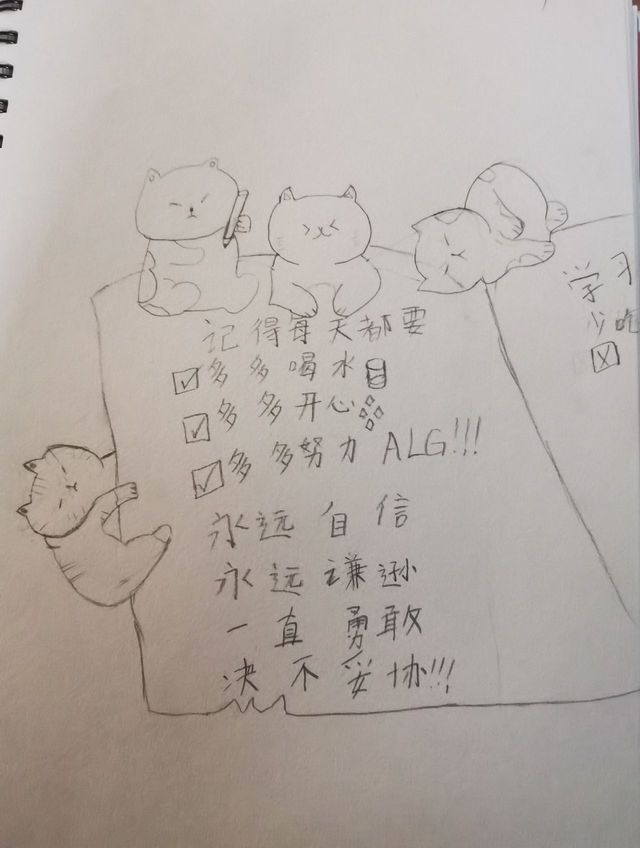 记得每天都要
多多喝水
多多开心
多多努力 ALG!!!
永远自信
永远谦逊
一直勇敢
决不妥协!!!
学习
少吃